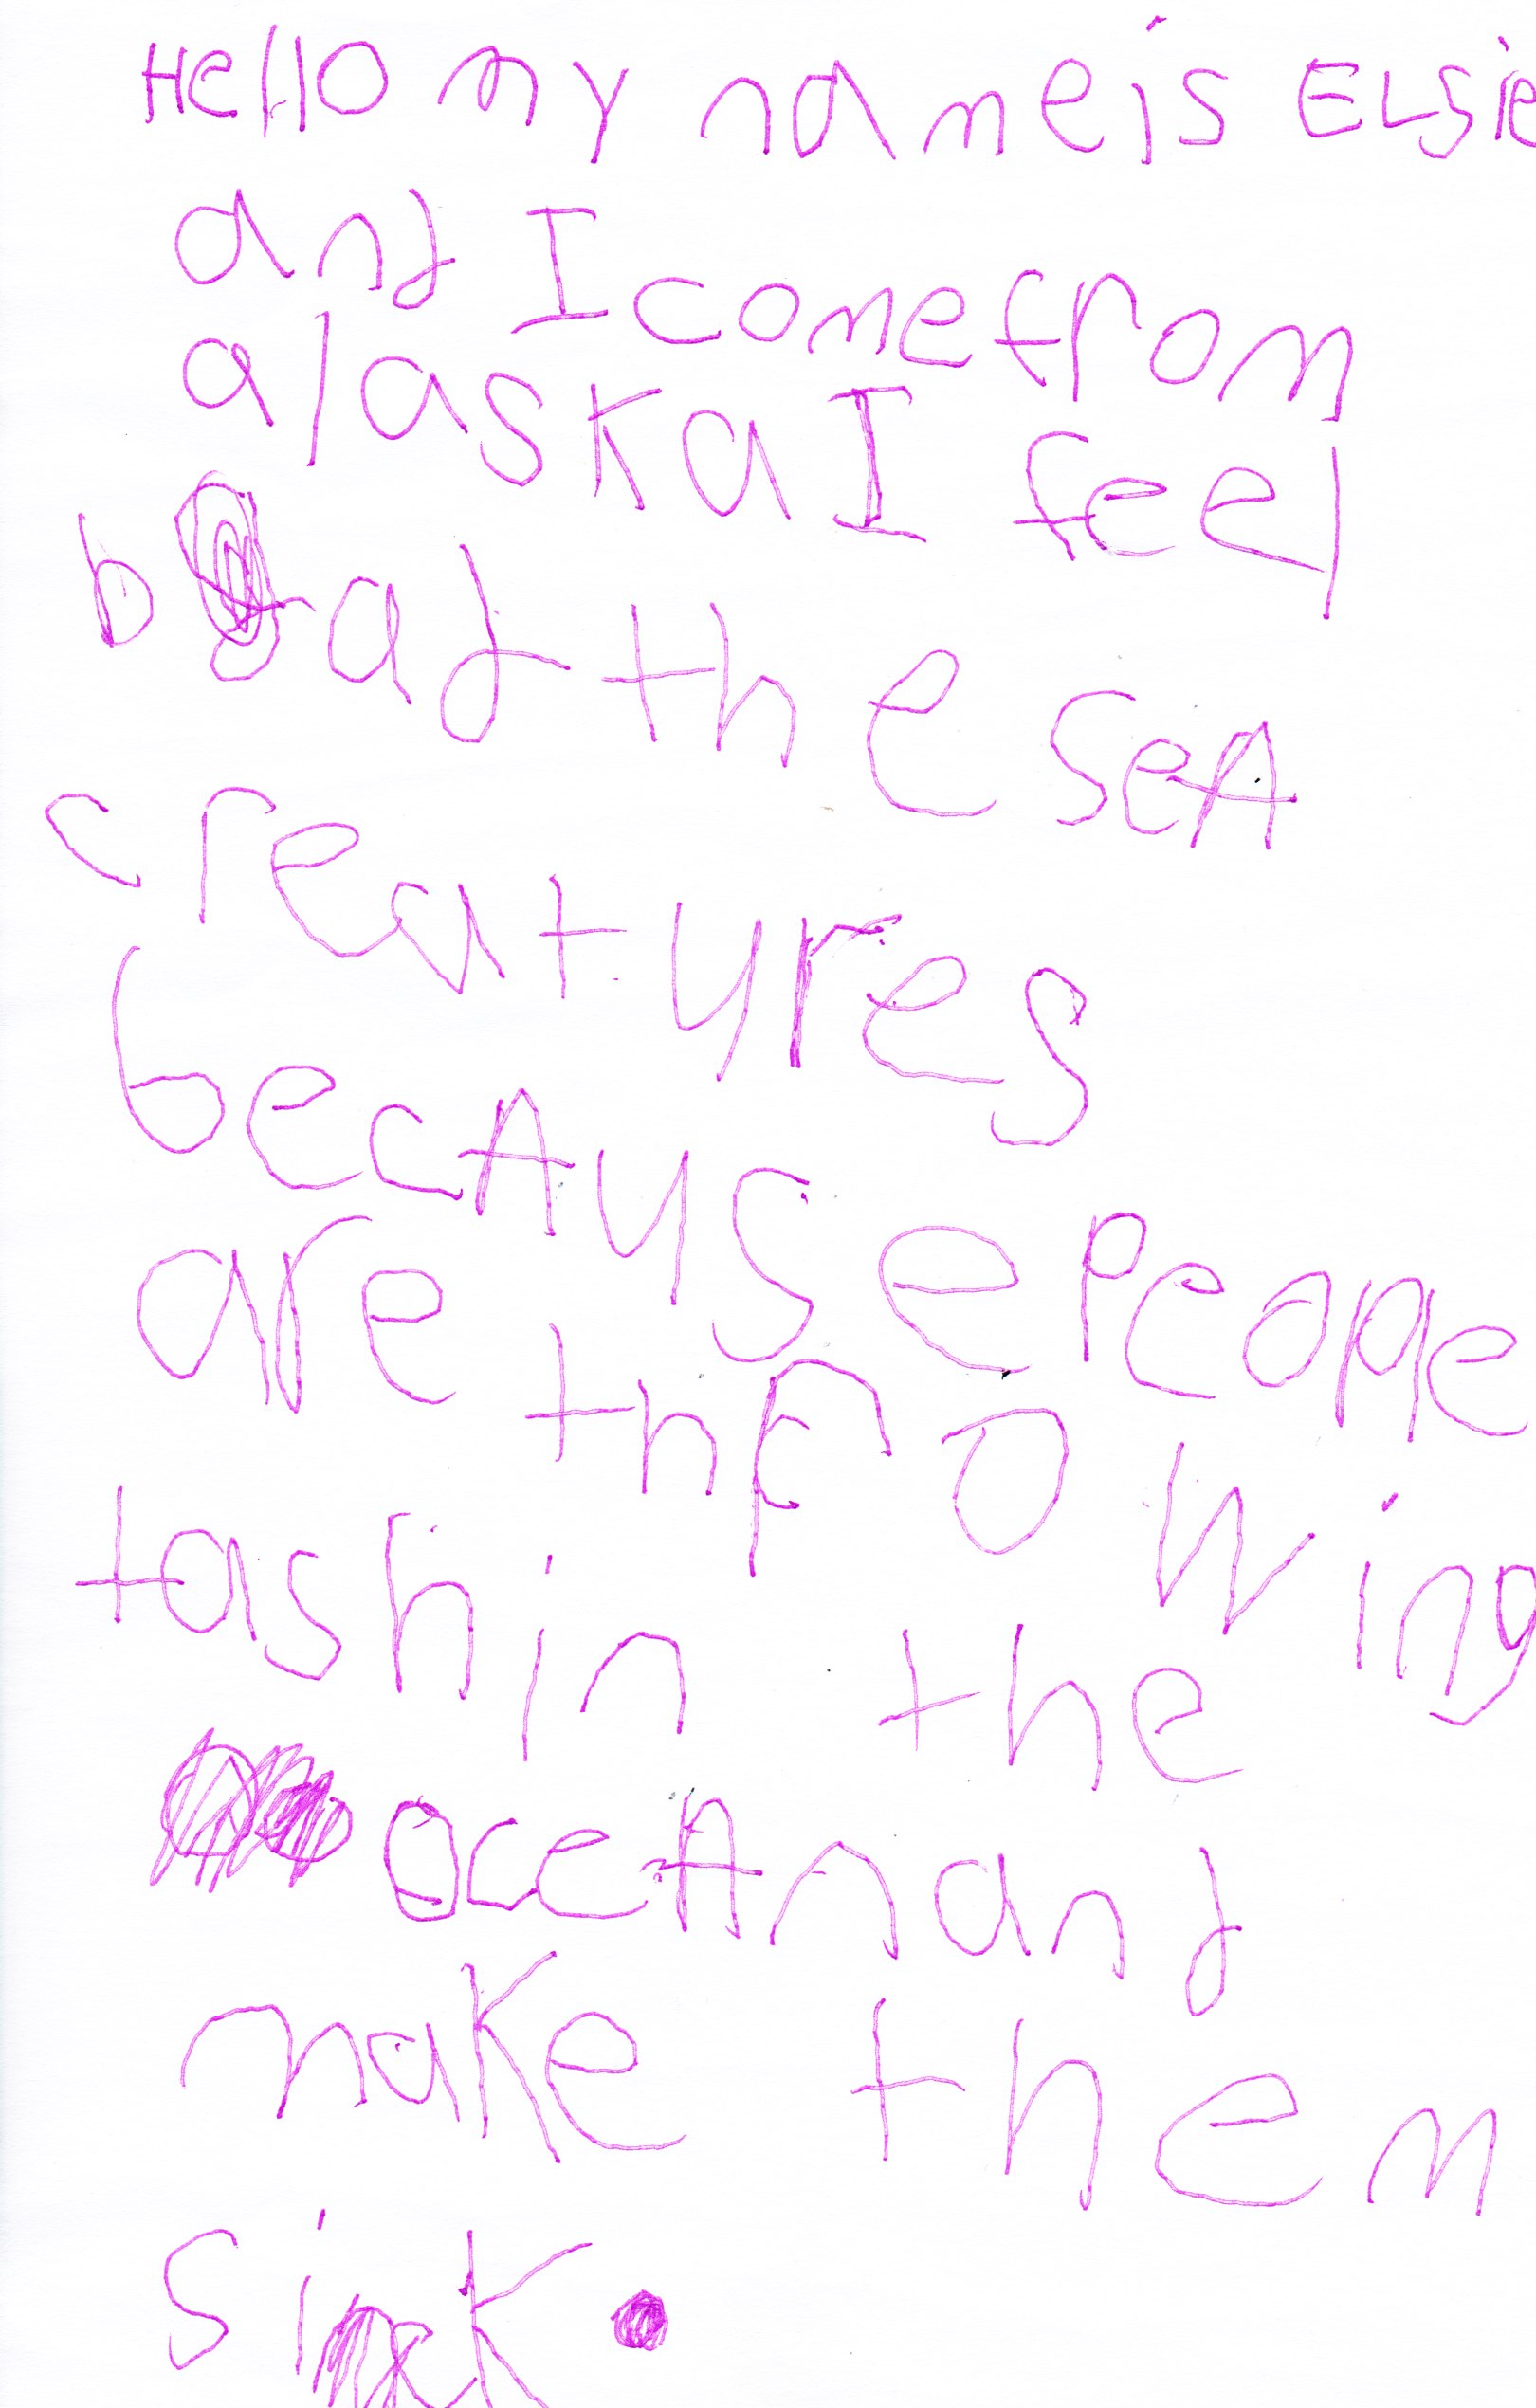 Hello my name is ELSie
and I come from
alaska I feel
bad the seA
creatures
becAuse peaple
are thrOwing
tash in the
oceAn and
make them
sick.